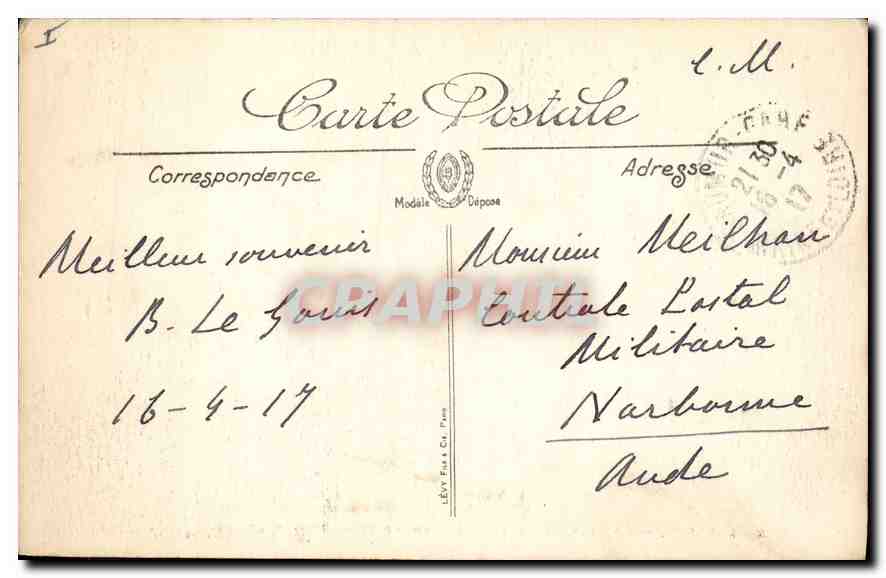 I
C. M.
Carte Postale
Correspondance
Adresse
Modèle Déposé
21 30
16 -4
17
Meilleur souvenir
B. Le Gouis
16-4-17
Monsieur Meilhan
Controle Postal
Militaire
Narbonne
Aude
LÉVY FILS & CIE, PARIS
CPAPHIL